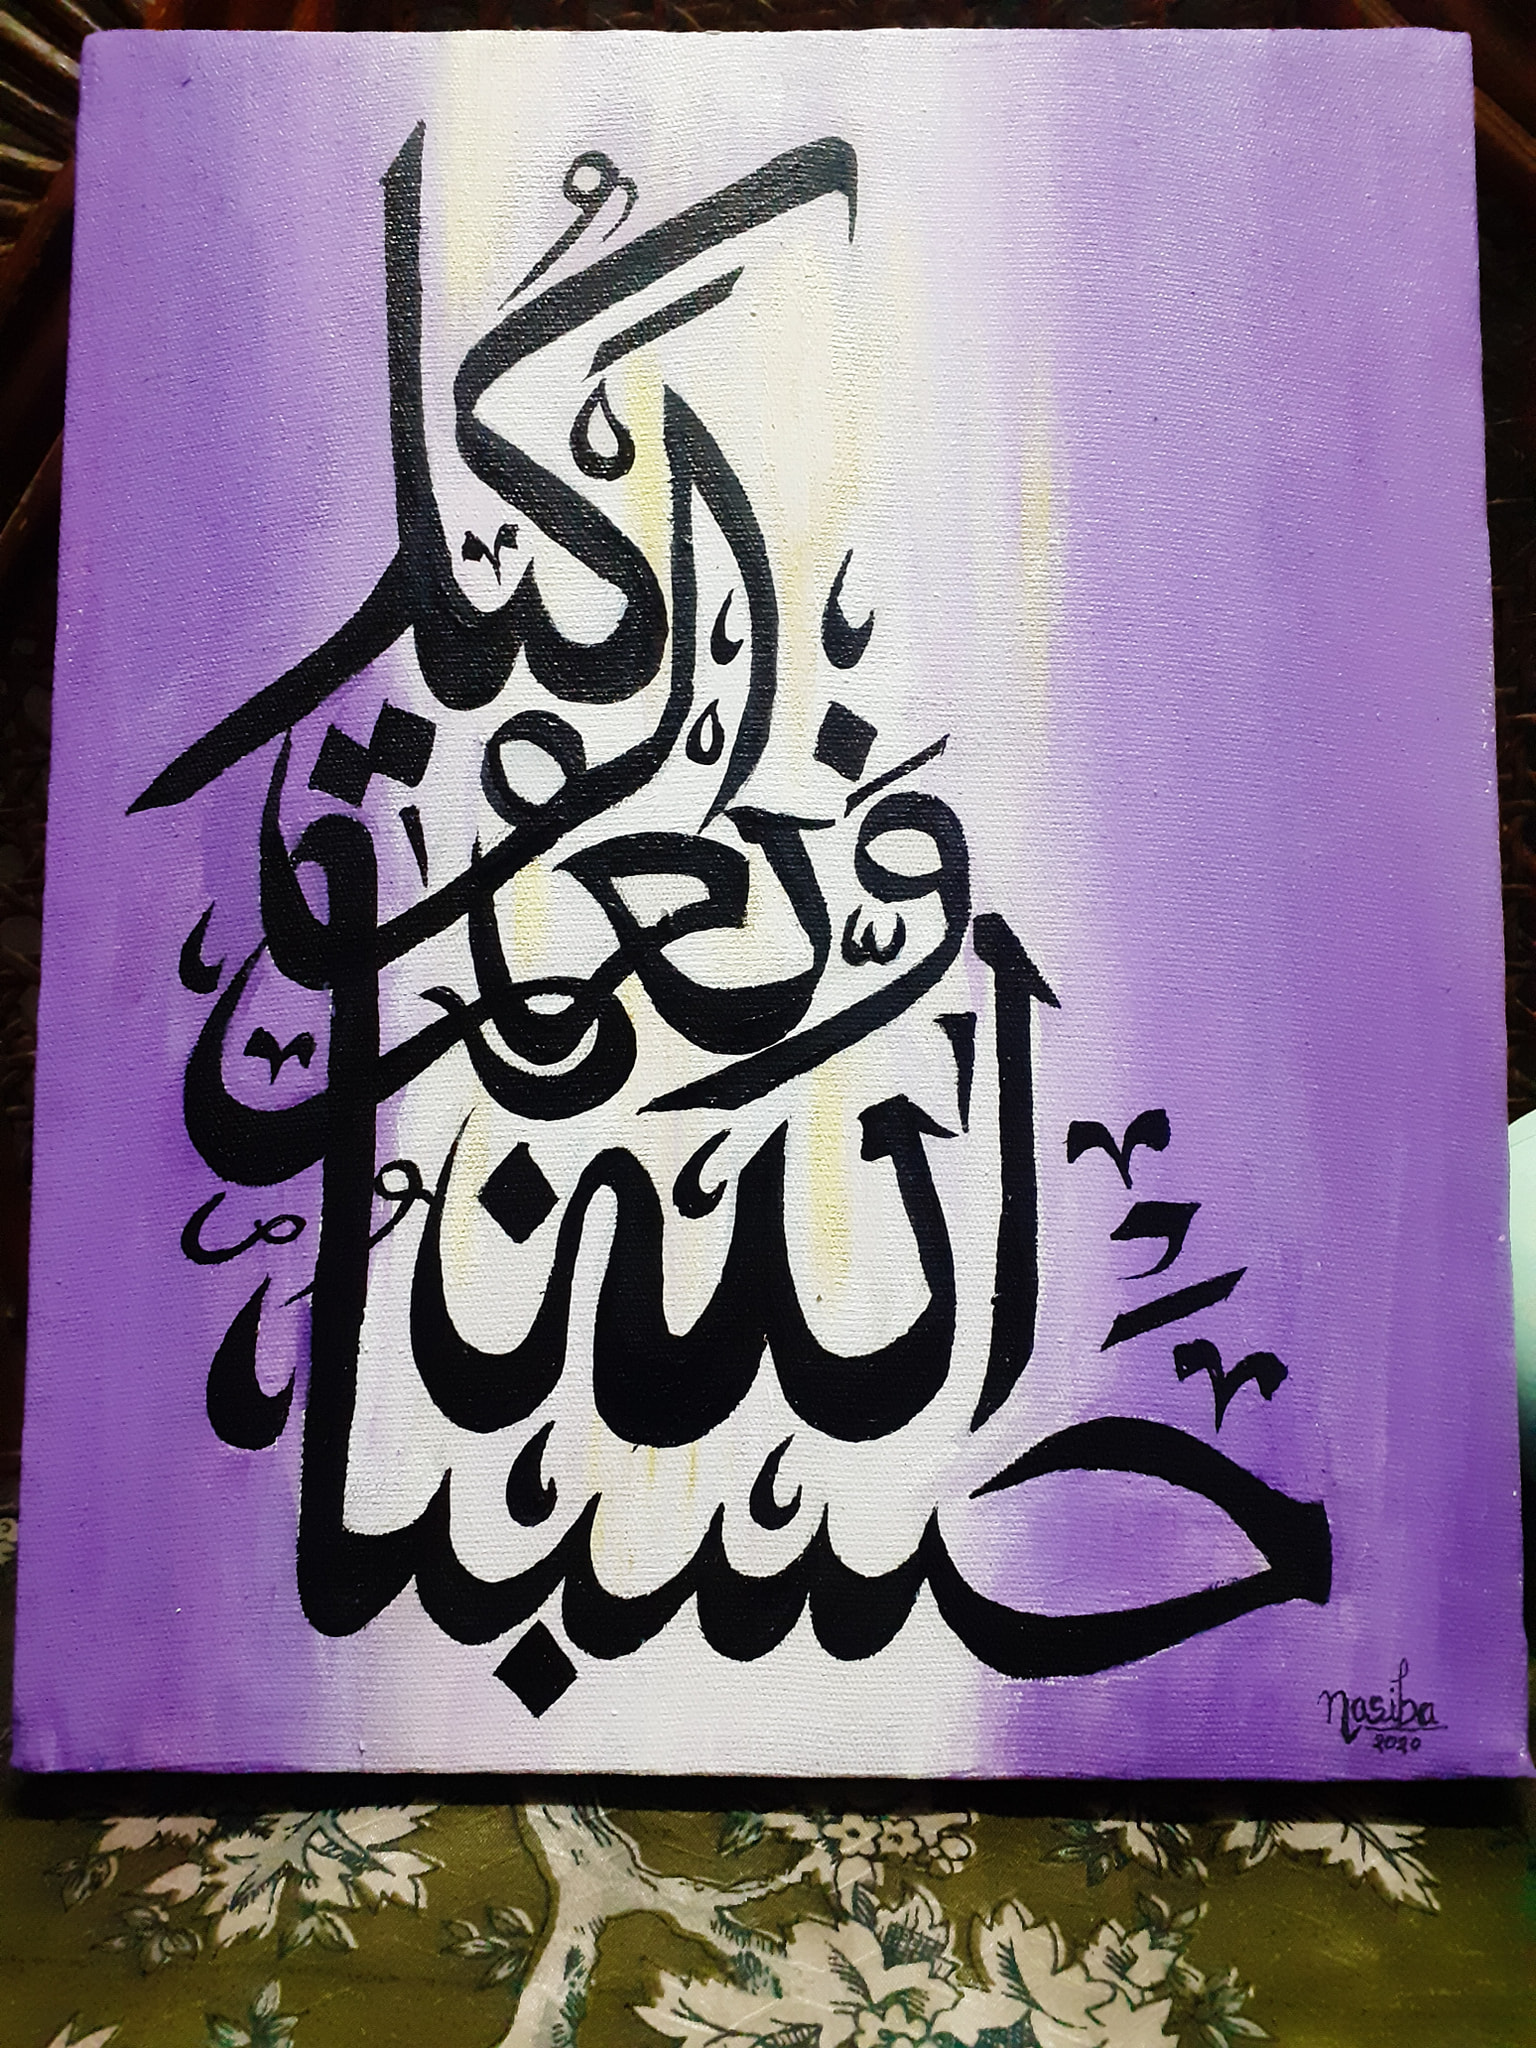 حسبنا
الله
ونعم
الوكيل
Nasiba
2020